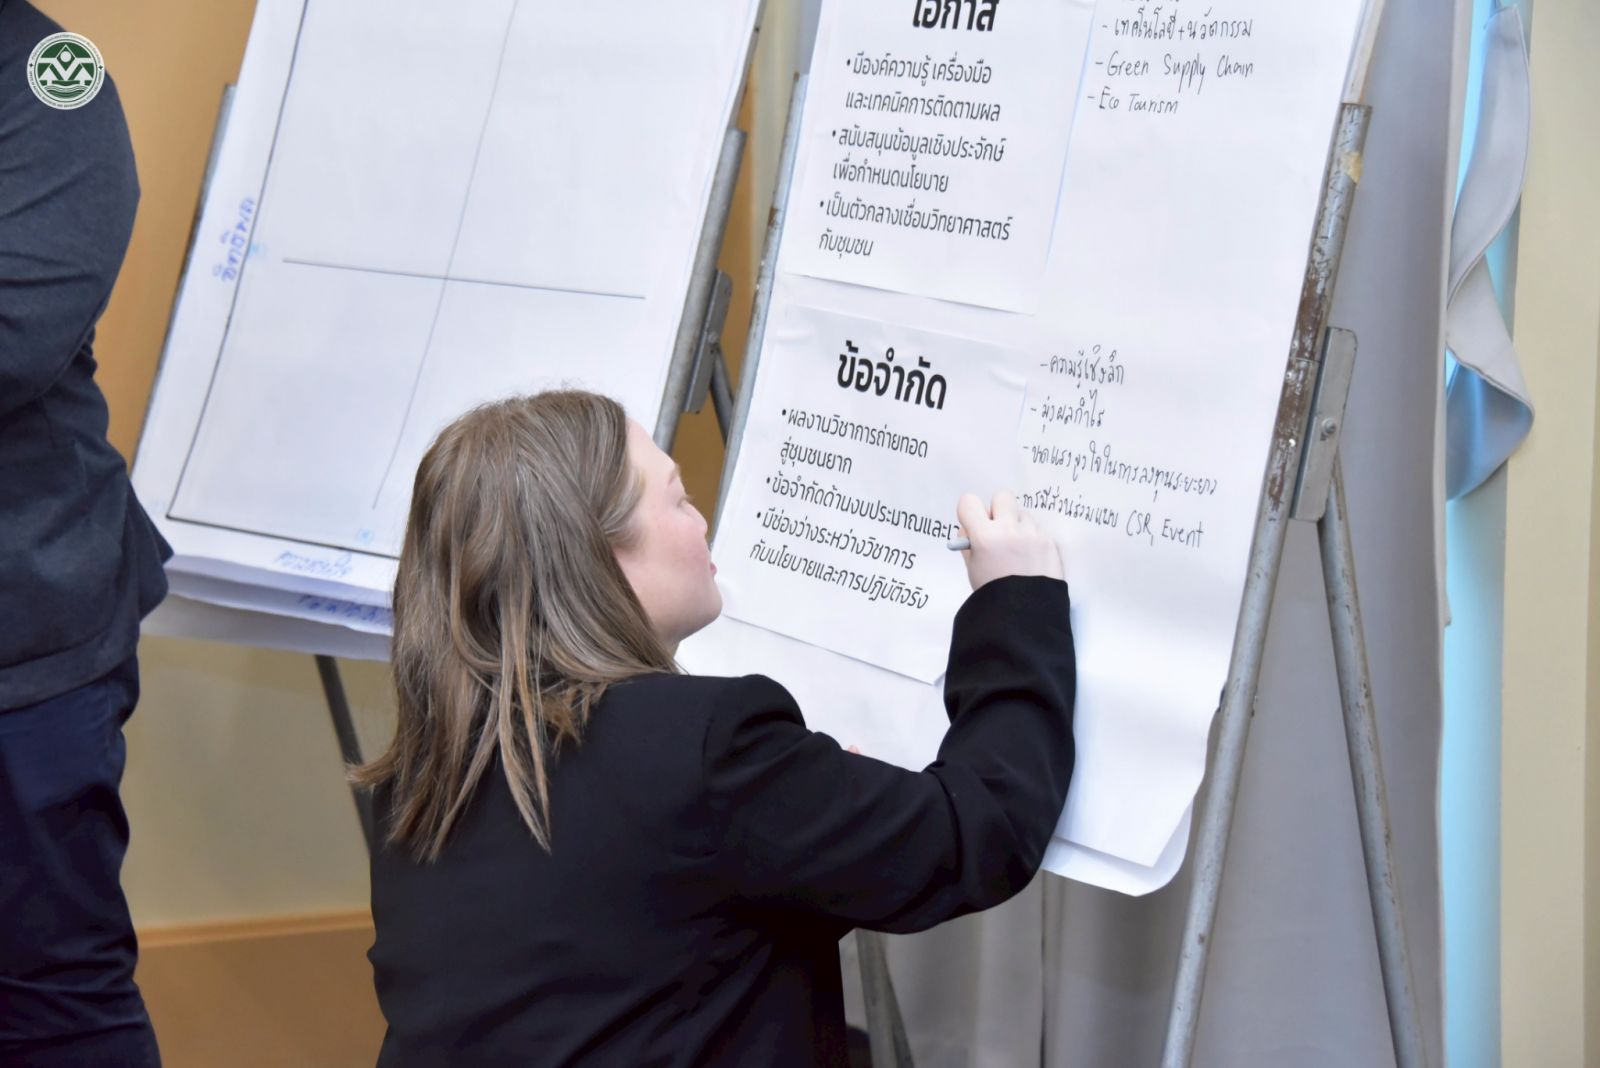 โอกาส
• มีองค์ความรู้ เครื่องมือ
และเทคนิคการติดตามผล
• สนับสนุนข้อมูลเชิงประจักษ์
เพื่อกำหนดนโยบาย
• เป็นตัวกลางเชื่อมวิทยาศาสตร์
กับชุมชน
- เทคโนโลยี + นวัตกรรม
- Green Supply Chain
- Eco Tourism
ข้อจำกัด
• ผลงานวิชาการถ่ายทอด
สู่ชุมชนยาก
• ข้อจำกัดด้านงบประมาณและเ
• มีช่องว่างระหว่างวิชาการ
กับนโยบายและการปฏิบัติจริง
- ความรู้เชิงลึก
- มุ่งผลกำไร
- ขาดแรงจูงใจในการลงทุนระยะยาว
- การมีส่วนร่วมแบบ CSR, Event